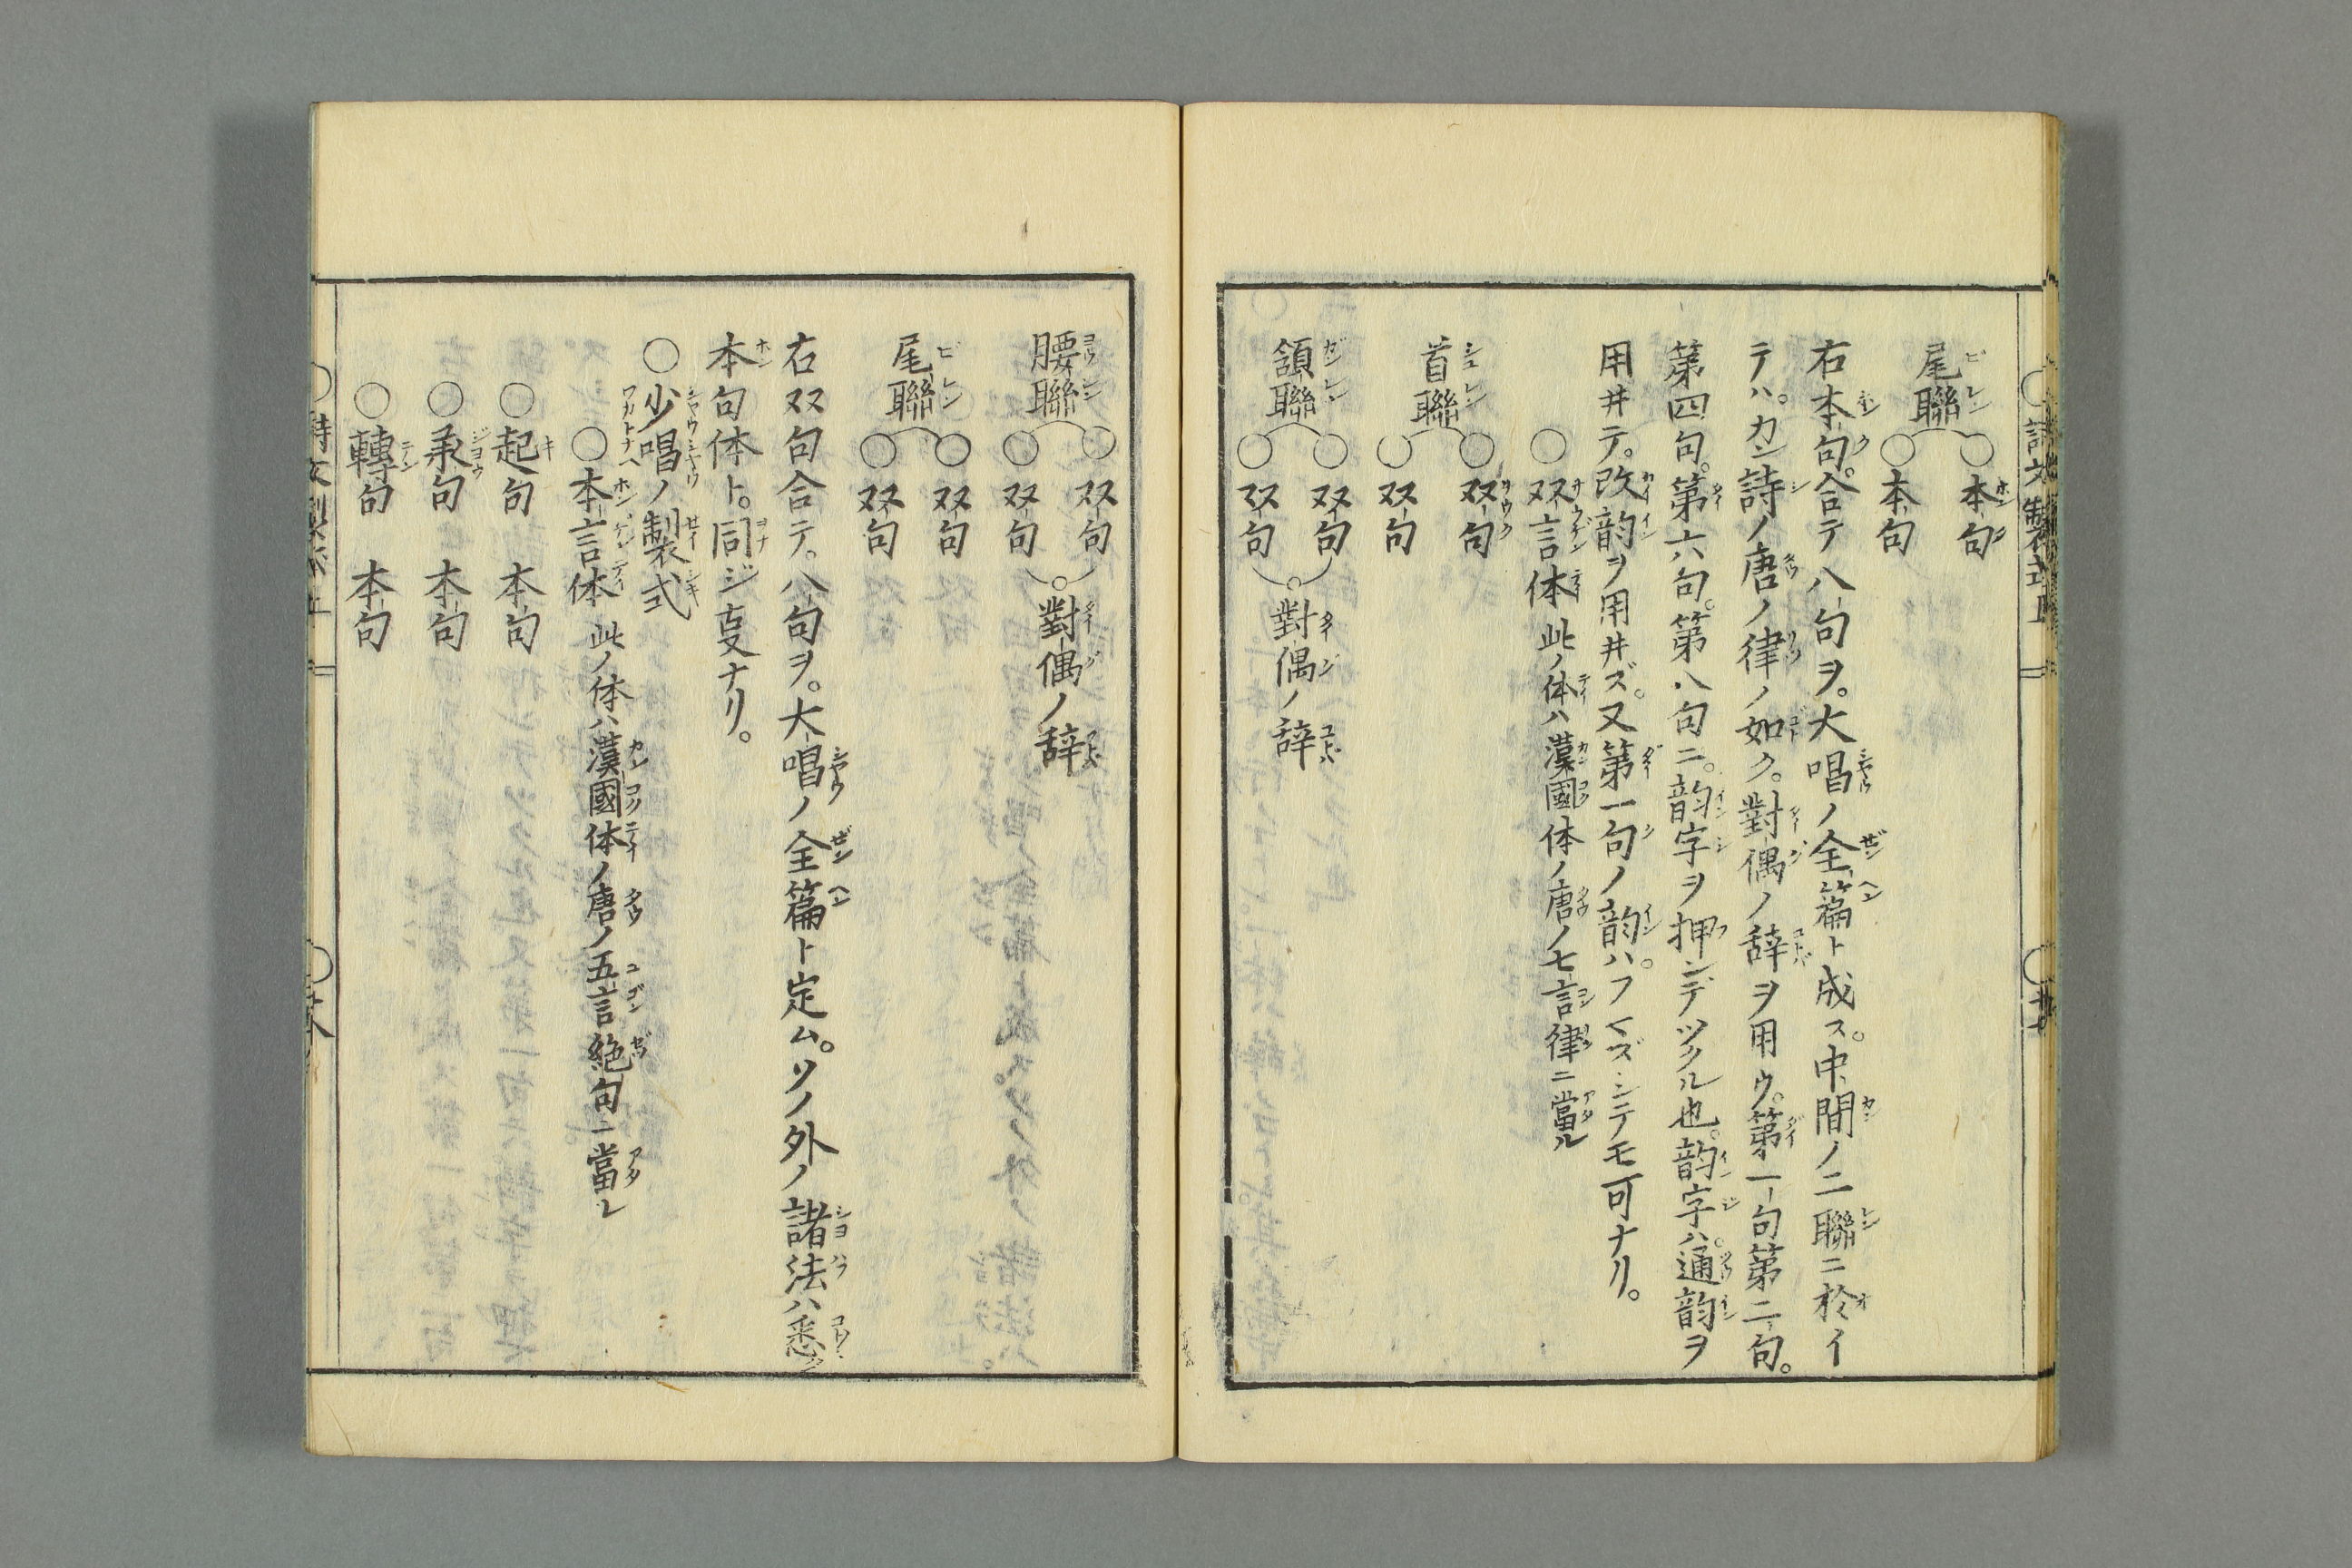 尾聯
○本句
○本句
右本句。合テ八句ヲ。大唱ノ全篇ト成ス。中間ノ二聯ニ於イ
テハ。カン詩ノ唐ノ律ノ如ク。對偶ノ辞ヲ用ウ。第一句第二句。
第四句。第六句。第八句ニ。韵字ヲ押ンデツクル也。韵字ハ。通韵ヲ
用井テ。改韵ヲ用井ズ。又第一句ノ韵ハ。フくズシテモ可ナリ。
○双言体 此ノ体ハ漢國体ノ唐ノ七言律ニ當ル
首聯
○双句
○双句
頷聯
○双句
○双句
○對偶ノ辞
腰聯
○双句
○双句
○對偶ノ辞
尾聯
○双句
○双句
右双句合テ。八句ヲ。大唱ノ全篇ト定ム。ソノ外ノ諸法ハ悉ク
本句体ト。同ジ叓ナリ。
○少唱ノ製式
○本言体 此ノ体ハ漢國体ノ唐ノ五言絶句ニ當レ
○起句 本句
○承句 本句
○轉句 本句